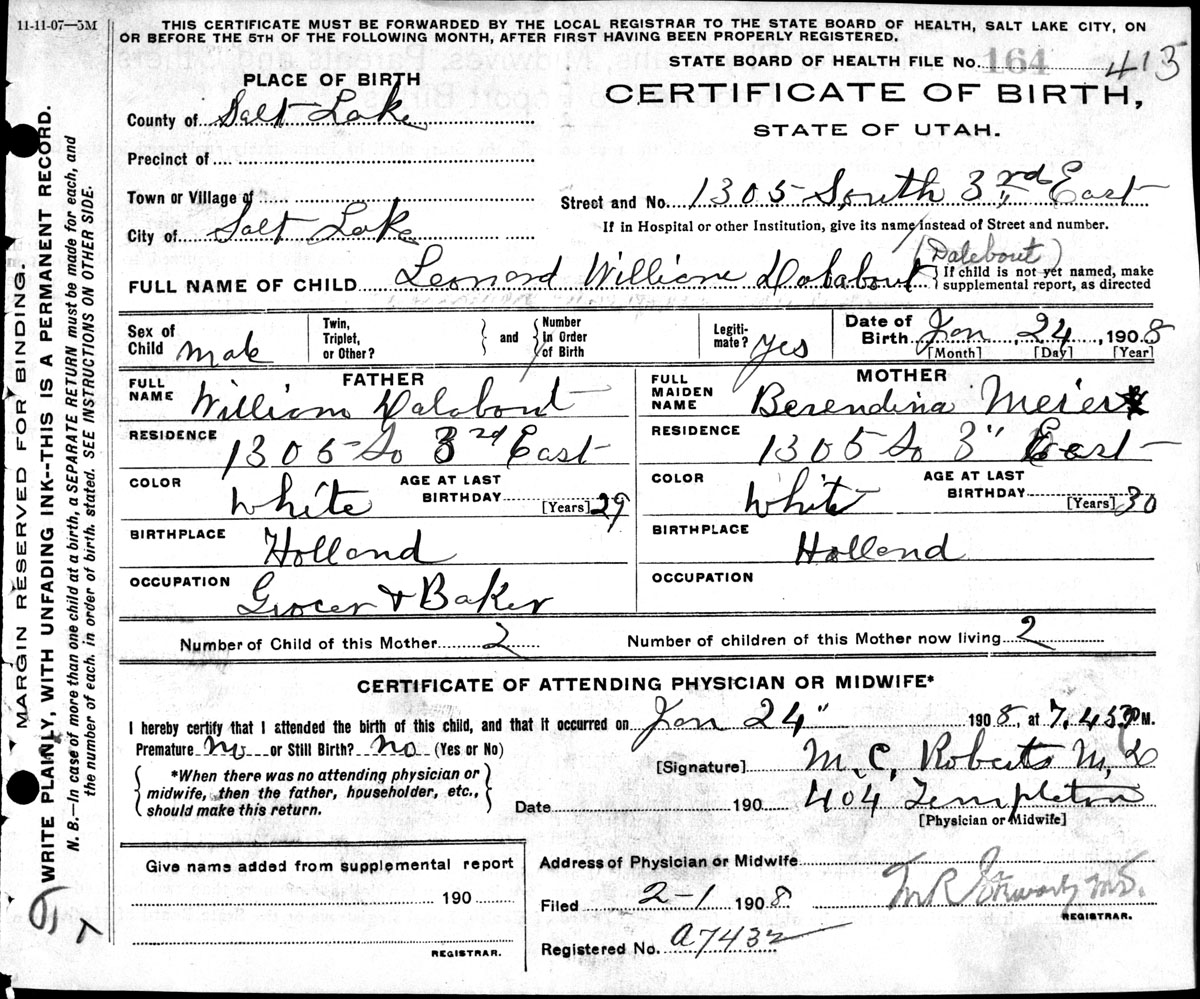 11-11-07—5M
THIS CERTIFICATE MUST BE FORWARDED BY THE LOCAL REGISTRAR TO THE STATE BOARD OF HEALTH, SALT LAKE CITY, ON
OR BEFORE THE 5TH OF THE FOLLOWING MONTH, AFTER FIRST HAVING BEEN PROPERLY REGISTERED.
STATE BOARD OF HEALTH FILE No. 164 413
PLACE OF BIRTH
CERTIFICATE OF BIRTH,
STATE OF UTAH.
County of Salt Lake
Precinct of
Town or Village of
Street and No. 1305 South 3rd East
If in Hospital or other Institution, give its name instead of Street and number.
City of Salt Lake
(Dalebout)
FULL NAME OF CHILD Leonard William Dalabout
If child is not yet named, make
supplemental report, as directed
Sex of Child Male
Twin, Triplet, or Other? and Number in Order of Birth
Legitimate? yes
Date of Birth Jan, 24, 1908
[Month] [Day] [Year]
FATHER
FULL NAME William Dalabout
RESIDENCE 1305 So 3rd East
COLOR White
AGE AT LAST BIRTHDAY [Years] 29
BIRTHPLACE Holland
OCCUPATION Grocer & Baker
MOTHER
FULL MAIDEN NAME Berendina Meier
RESIDENCE 1305 So 3" East
COLOR White
AGE AT LAST BIRTHDAY [Years] 30
BIRTHPLACE Holland
OCCUPATION
Number of Child of this Mother 2
Number of children of this Mother now living 2
CERTIFICATE OF ATTENDING PHYSICIAN OR MIDWIFE*
I hereby certify that I attended the birth of this child, and that it occurred on Jan 24" 1908, at 7.45 P M.
Premature no or Still Birth? no (Yes or No)
*When there was no attending physician or
midwife, then the father, householder, etc.,
should make this return.
[Signature] M. C. Roberts M. D
Date 190 404 Templeton
[Physician or Midwife]
Give name added from supplemental report
190
REGISTRAR.
Address of Physician or Midwife
Filed 2-1 1908.
REGISTRAR.
Registered No. a7432
MARGIN RESERVED FOR BINDING.
WRITE PLAINLY, WITH UNFADING INK--THIS IS A PERMANENT RECORD.
N. B.—In case of more than one child at a birth, a SEPARATE RETURN must be made for each, and
the number of each, in order of birth, stated. SEE INSTRUCTIONS ON OTHER SIDE.